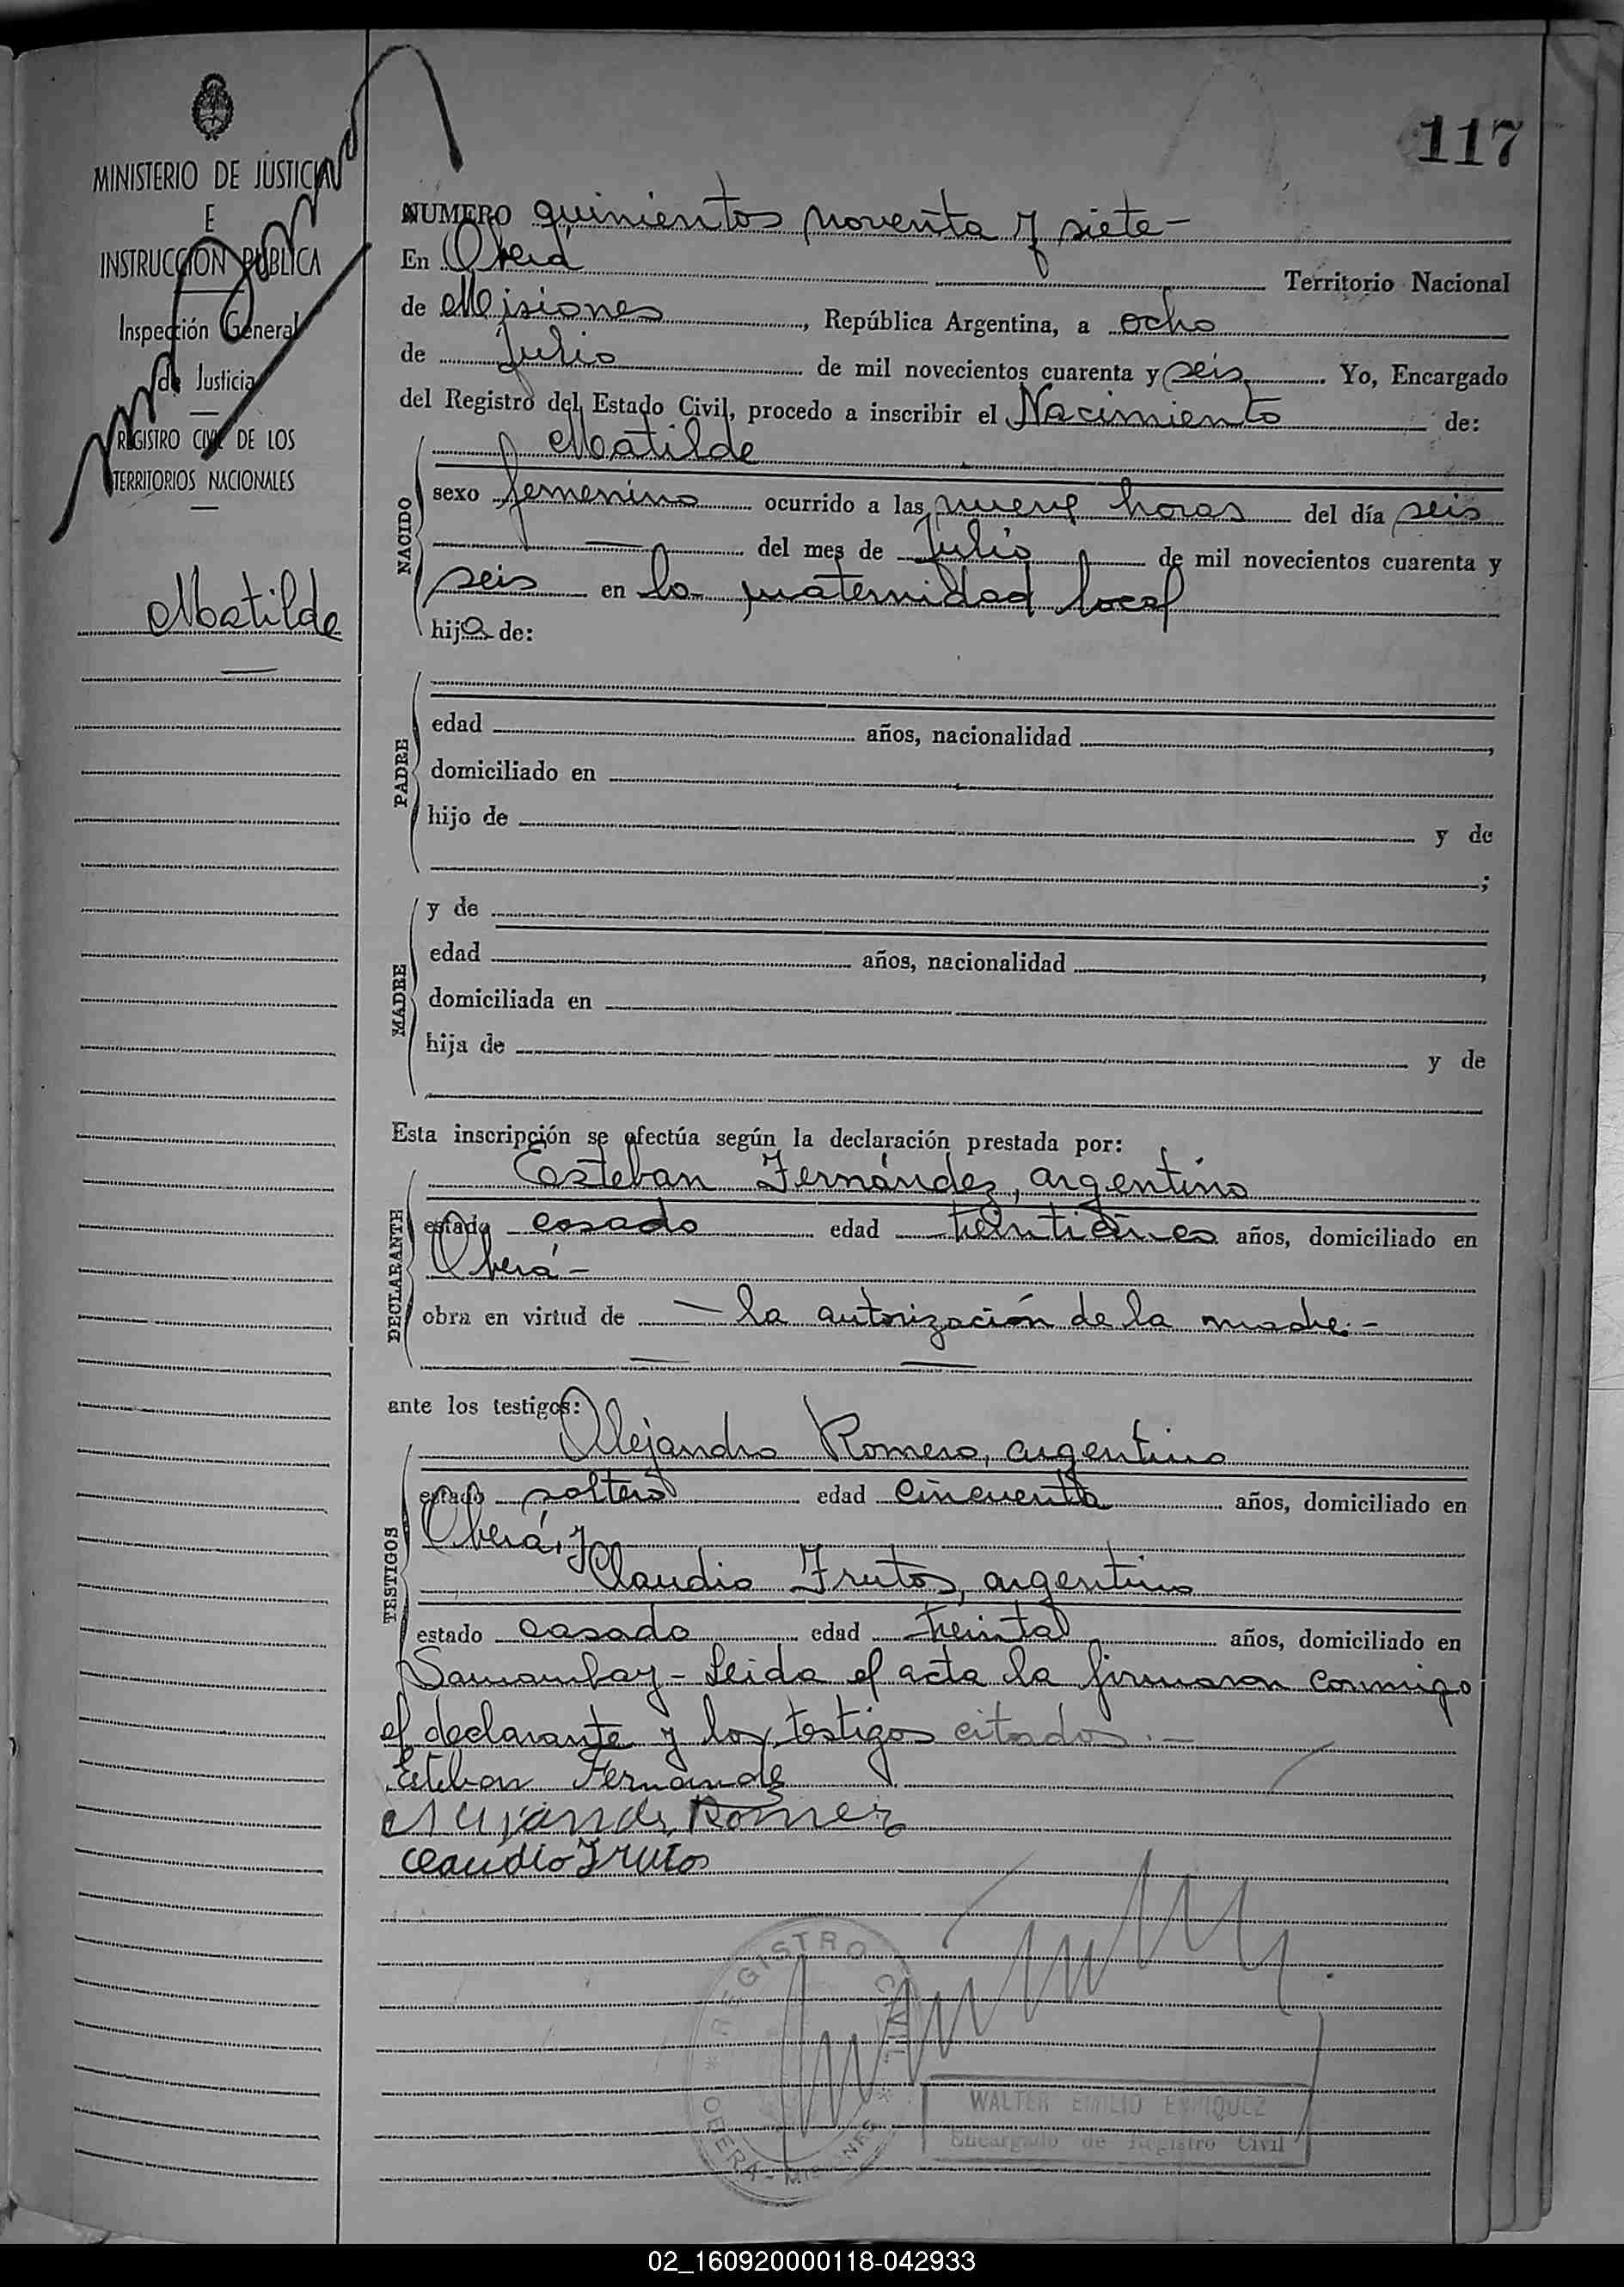 117
MINISTERIO DE JUSTICIA
E
INSTRUCCIÓN PUBLICA
Inspección General
de Justicia
REGISTRO CIVIL DE LOS
TERRITORIOS NACIONALES
Matilde
NUMERO quinientos noventa y siete-
En Oberá Territorio Nacional
de Misiones, República Argentina, a ocho
de Julio de mil novecientos cuarenta y seis. Yo, Encargado
del Registro del Estado Civil, procedo a inscribir el Nacimiento de:
NACIDO
Matilde
sexo femenino ocurrido a las nueve horas del día seis
del mes de Julio de mil novecientos cuarenta y
seis en la maternidad local
hija de:
PADRE
edad años, nacionalidad ,
domiciliado en
hijo de y de
;
MADRE
y de
edad años, nacionalidad ,
domiciliada en
hija de y de
Esta inscripción se efectúa según la declaración prestada por:
DECLARANTE
Esteban Fernández, argentino
estado casado edad años, domiciliado en
Oberá-
obra en virtud de — la autorización de la madre.-
ante los testigos:
TESTIGOS
Alejandro Romero, argentino
estado soltero edad cincuenta años, domiciliado en
Oberá, y
Claudio Frutos, argentino
estado casado edad treinta años, domiciliado en
Samambay- Leida el acta la firmaron conmigo
el declarante y los testigos citados.-
Esteban Fernande
Romer
Claudio Frutos
REGISTRO CIVIL
OBERA - MISIONES
WALTER EMILIO ENRIQUEZ
Encargado de Registro Civil
02_160920000118-042933